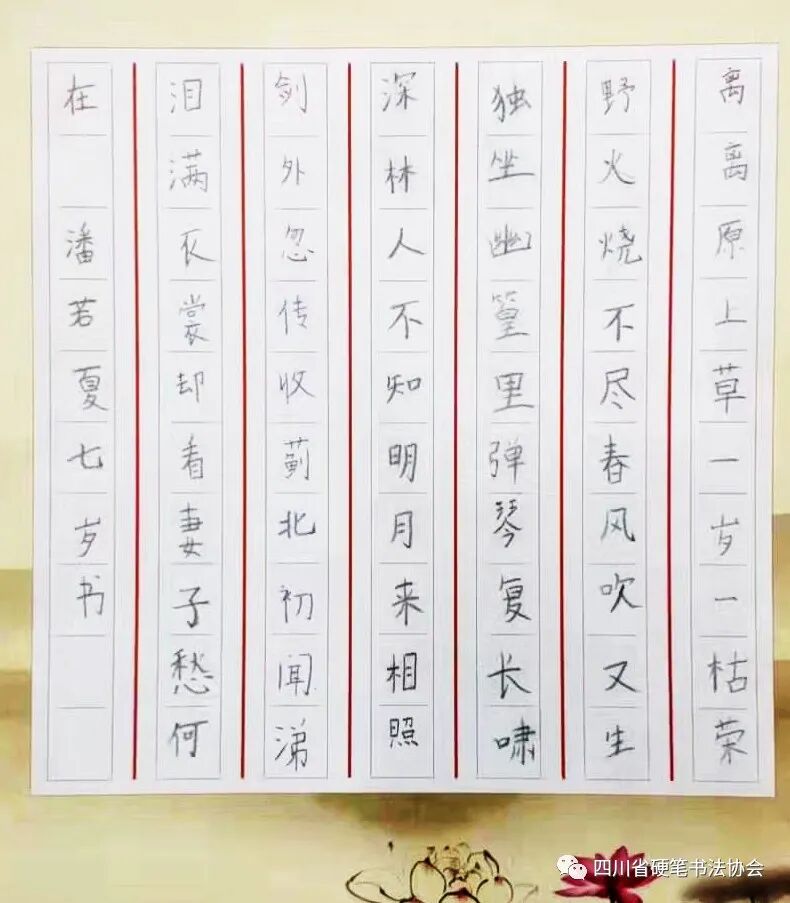 离离原上草一岁一枯荣
野火烧不尽春风吹又生
独坐幽篁里弹琴复长啸
深林人不知明月来相照
剑外忽传收蓟北初闻涕
泪满衣裳却看妻子愁何
在 潘若夏七岁书
四川省硬笔书法协会